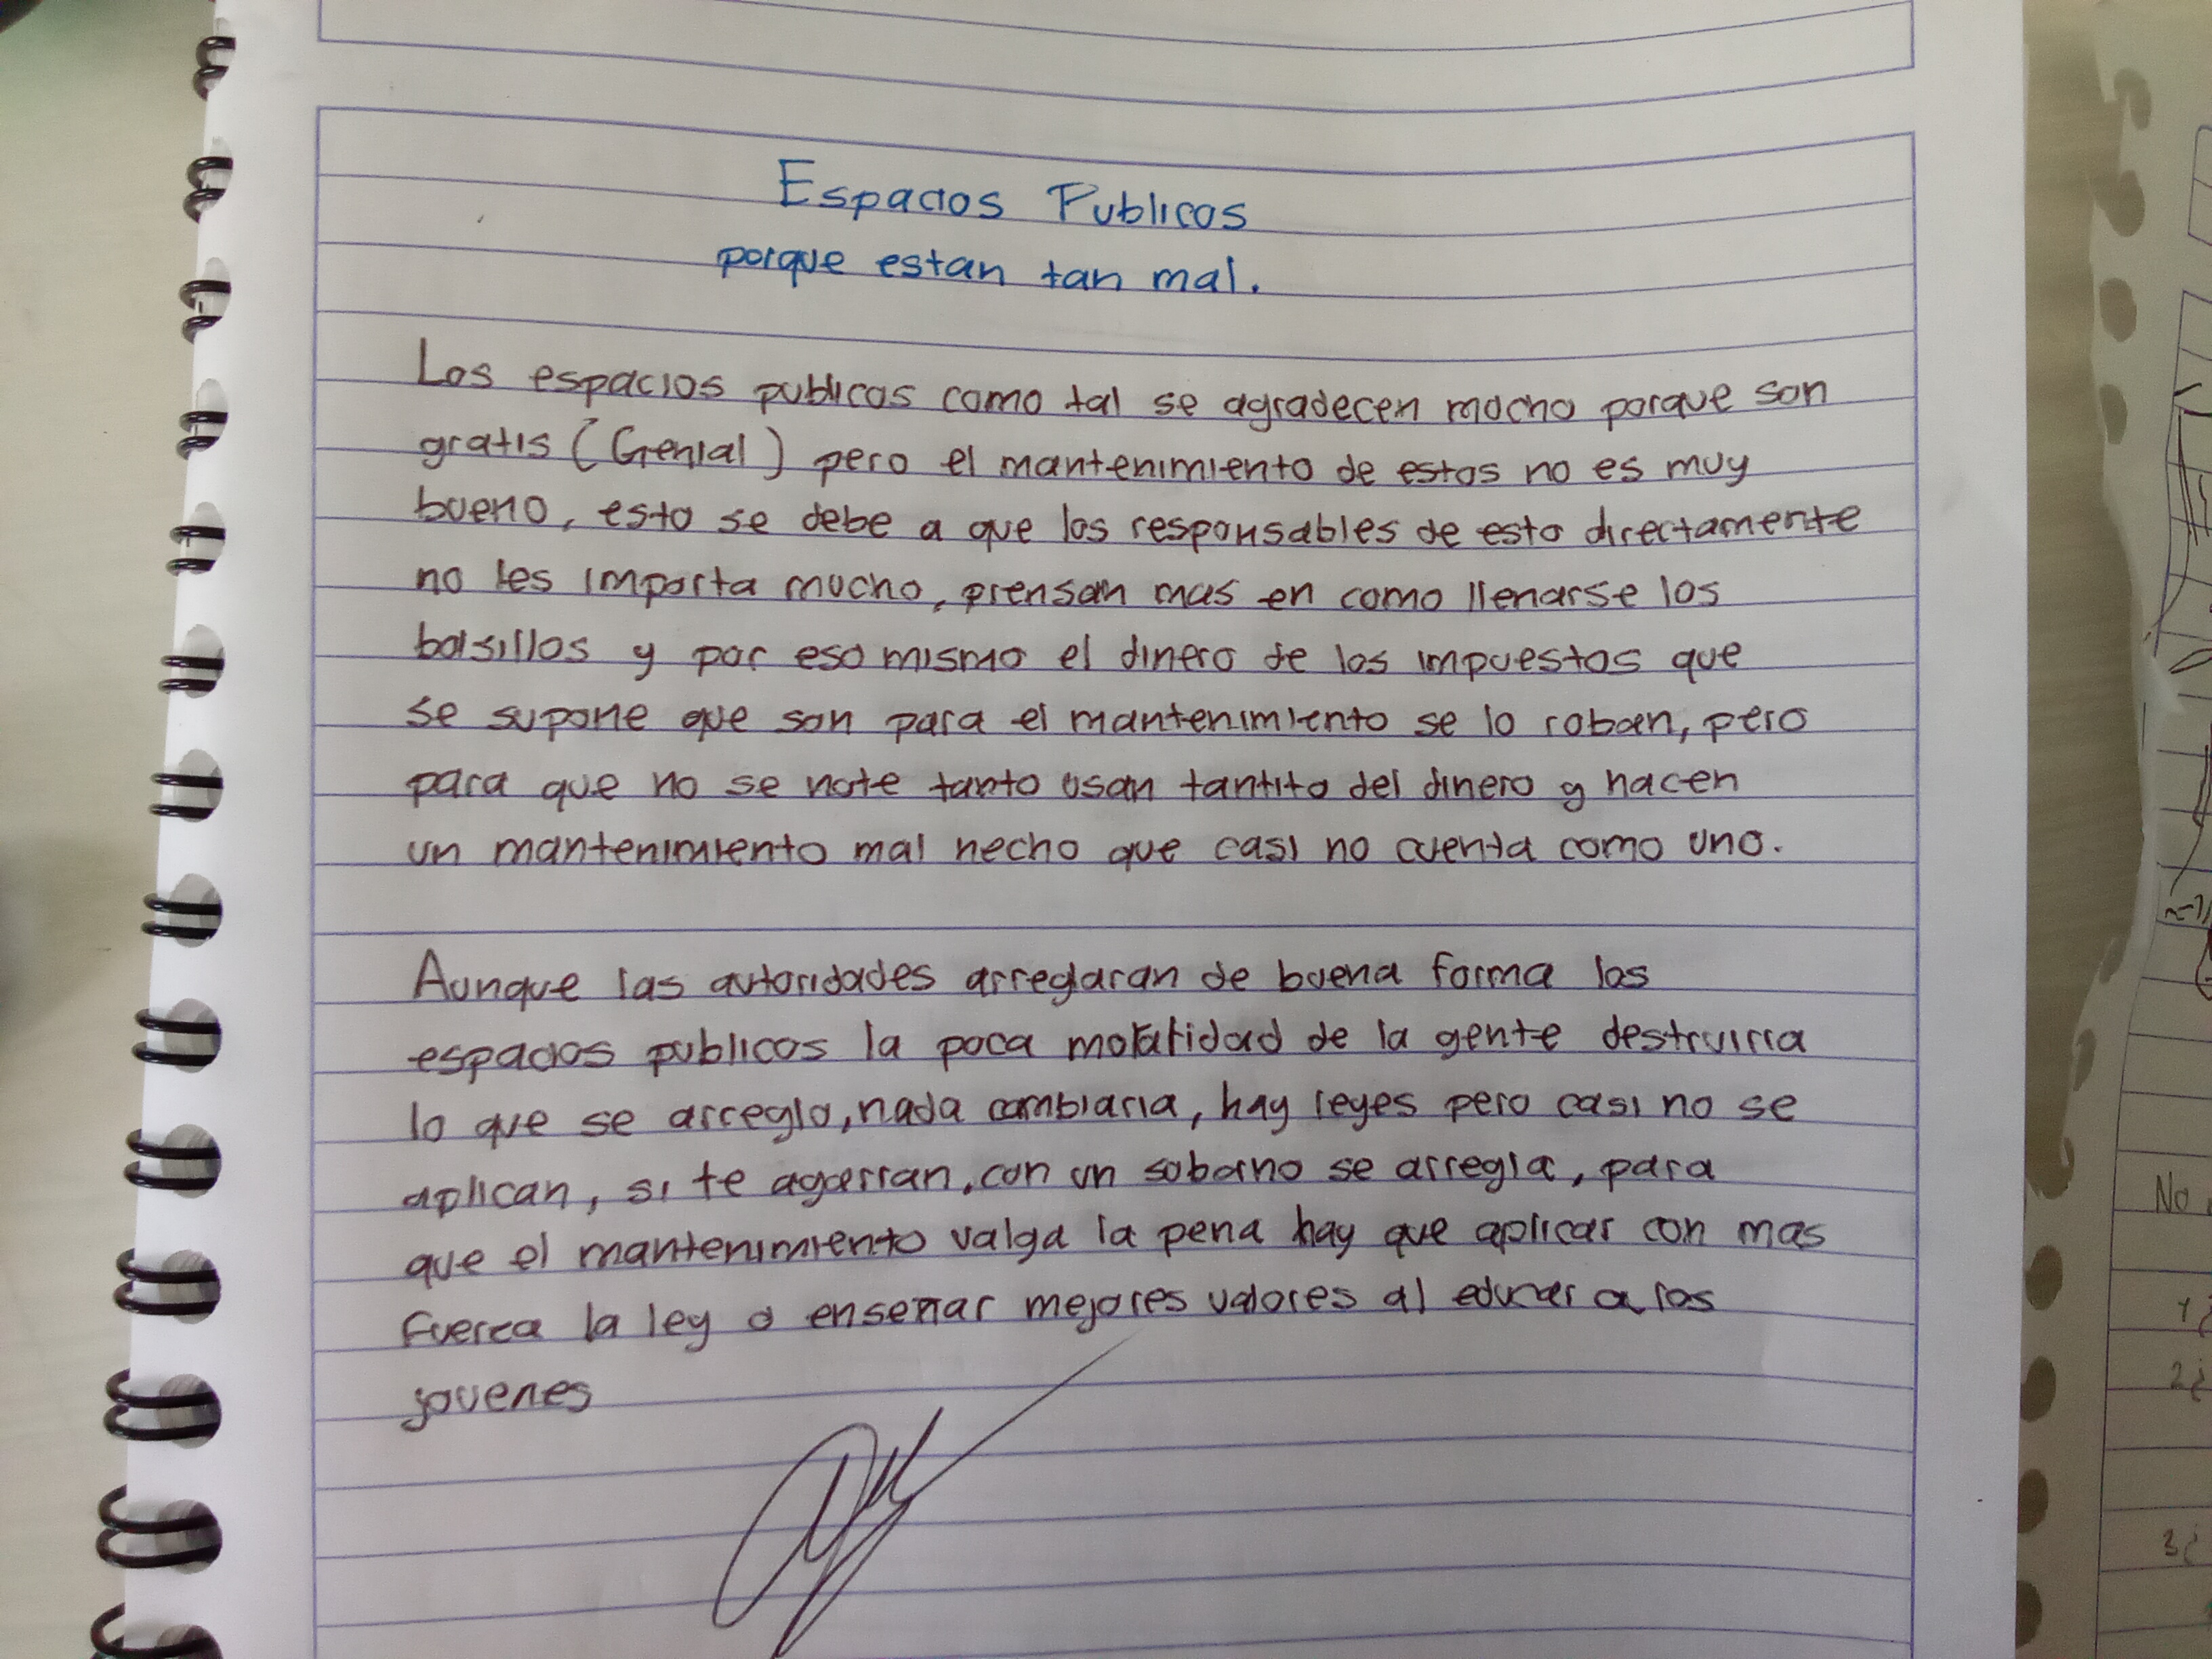 Espacios Publicos
porque estan tan mal.
Los espacios publicos como tal se agradecen mucho porque son
gratis (Genial) pero el mantenimiento de estos no es muy
bueno, esto se debe a que los responsables de esto directamente
no les importa mucho, piensan mas en como llenarse los
bolsillos y por eso mismo el dinero de los impuestos que
se supone que son para el mantenimiento se lo roban, pero
para que no se note tanto usan tantito del dinero y hacen
un mantenimiento mal hecho que casi no cuenta como uno.
Aunque las autoridades arreglaran de buena forma los
espacios publicos la poca moralidad de la gente destruiria
lo que se arreglo, nada cambiaria, hay leyes pero casi no se
aplican, si te agarran, con un soborno se arregla, para
que el mantenimiento valga la pena hay que aplicar con mas
fuerza la ley o enseñar mejores valores al educar a los
jovenes
No
1¿
2¿
3¿